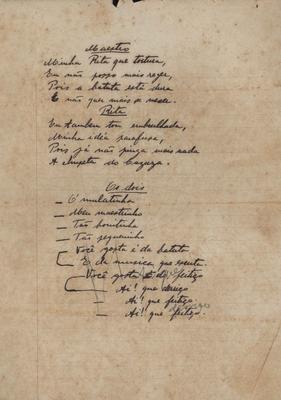 Maestro
Minha Rita que tortura,
Eu não posso mais reger,
Pois a batuta está dura
E não quer mais se mexer.
Rita
Eu tambem tou embrulhada,
Minha idéa parafusa,
Pois já não pinça mais nada
A do
Os dois
— O' mulatinha
— Meu maestrinho
— Tão bonitinha
— Tão pequenino
Você gosta é da batuta
E da musica que escuta.
Você gosta é do feitiço
— Ai! que
— Ai! que feitiço.
— Ai!! que feitiço.